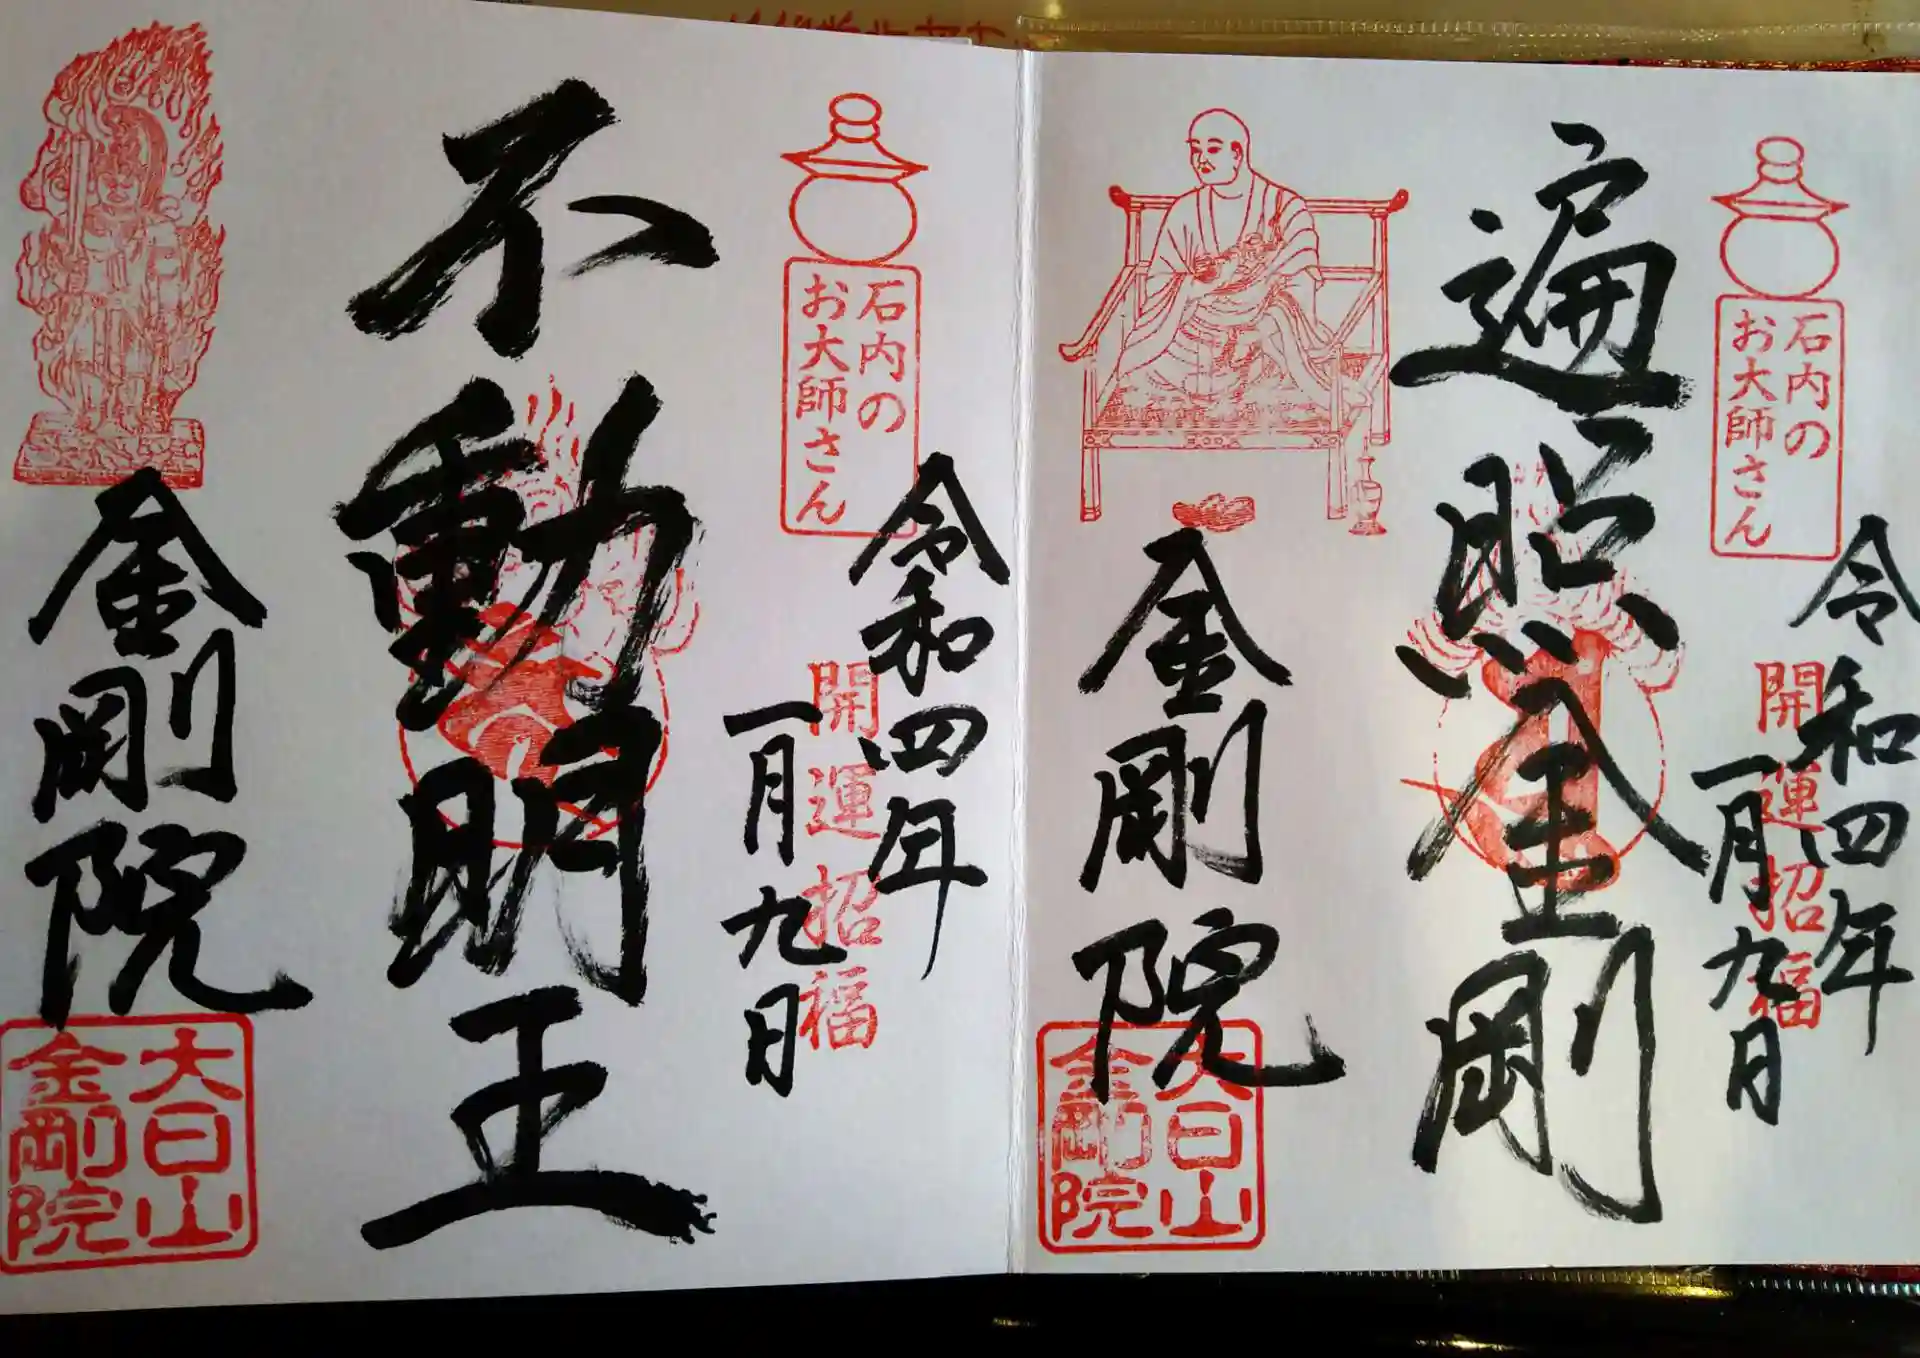 石内の
お大師さん
令和四年
一月九日
開運招福
遍照金剛
金剛院
大日山
金剛院
石内の
お大師さん
令和四年
一月九日
開運招福
不動明王
金剛院
大日山
金剛院